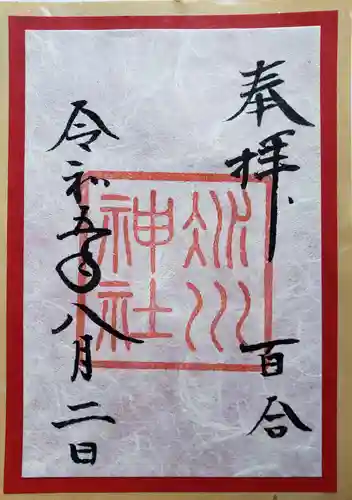 奉拝
百合
冰川
神社
令和五年八月二日